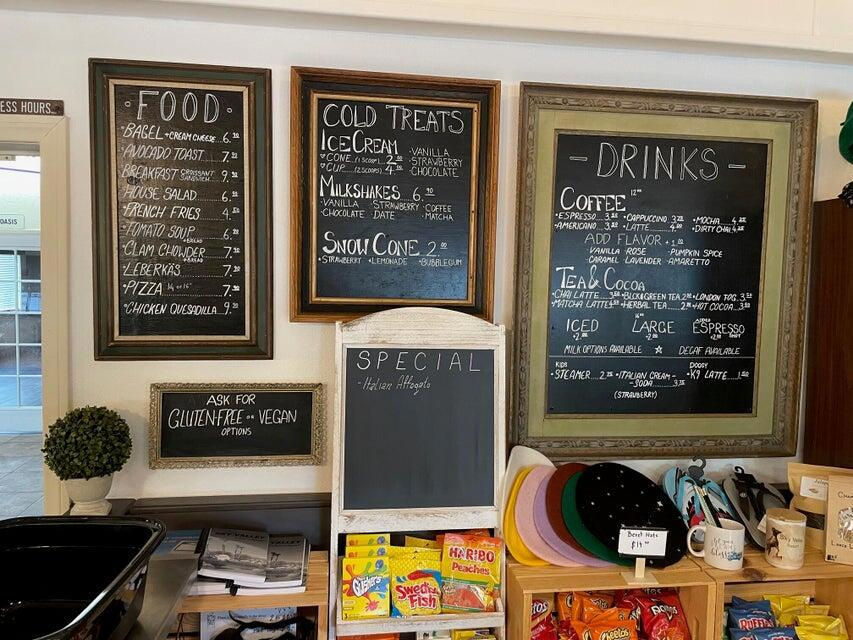 ESS HOURS...
OASIS
FOOD
BAGEL + CREAM CHEESE 6.
AVOCADO TOAST 7.
BREAKFAST CROISSANT SANDWICH 9.
HOUSE SALAD 6.
FRENCH FRIES 4.
TOMATO SOUP + BREAD 6.
CLAM CHOWDER + BREAD 7.
LEBERKÄS 7.
PIZZA 7.
CHICKEN QUESADILLA 9.
ASK FOR
GLUTEN-FREE OR VEGAN
OPTIONS
COLD TREATS
ICE CREAM
CONE (1 SCOOP) 2.
CUP (2 SCOOPS) 4.
VANILLA
STRAWBERRY
CHOCOLATE
MILKSHAKES 6.
VANILLA STRAWBERRY COFFEE
CHOCOLATE DATE MATCHA
SNOW CONE 2.
STRAWBERRY LEMONADE BUBBLEGUM
SPECIAL
-Italian Affogato
- DRINKS -
COFFEE 12oz
ESPRESSO 3. CAPPUCCINO 3. MOCHA 4.
AMERICANO 3. LATTE 4. DIRTY CHAI 4.
ADD FLAVOR + 1.
VANILLA ROSE PUMPKIN SPICE
CARAMEL LAVENDER AMARETTO
TEA & COCOA
CHAI LATTE 3. BLCK & GREEN TEA 2. LONDON FOG 3.
MATCHA LATTE HERBAL TEA 2. HOT COCOA 3.
ICED LARGE ADDED ESPRESSO
MILK OPTIONS AVAILABLE DECAF AVAILABLE
KIDS DOGGY
STEAMER 2. ITALIAN CREAM K9 LATTE 1.
SODA 3.
(STRAWBERRY)
Beret Hats
$14
Gushers
Swedish Fish
HARIBO
Peaches
Cheetos
RUFFLES